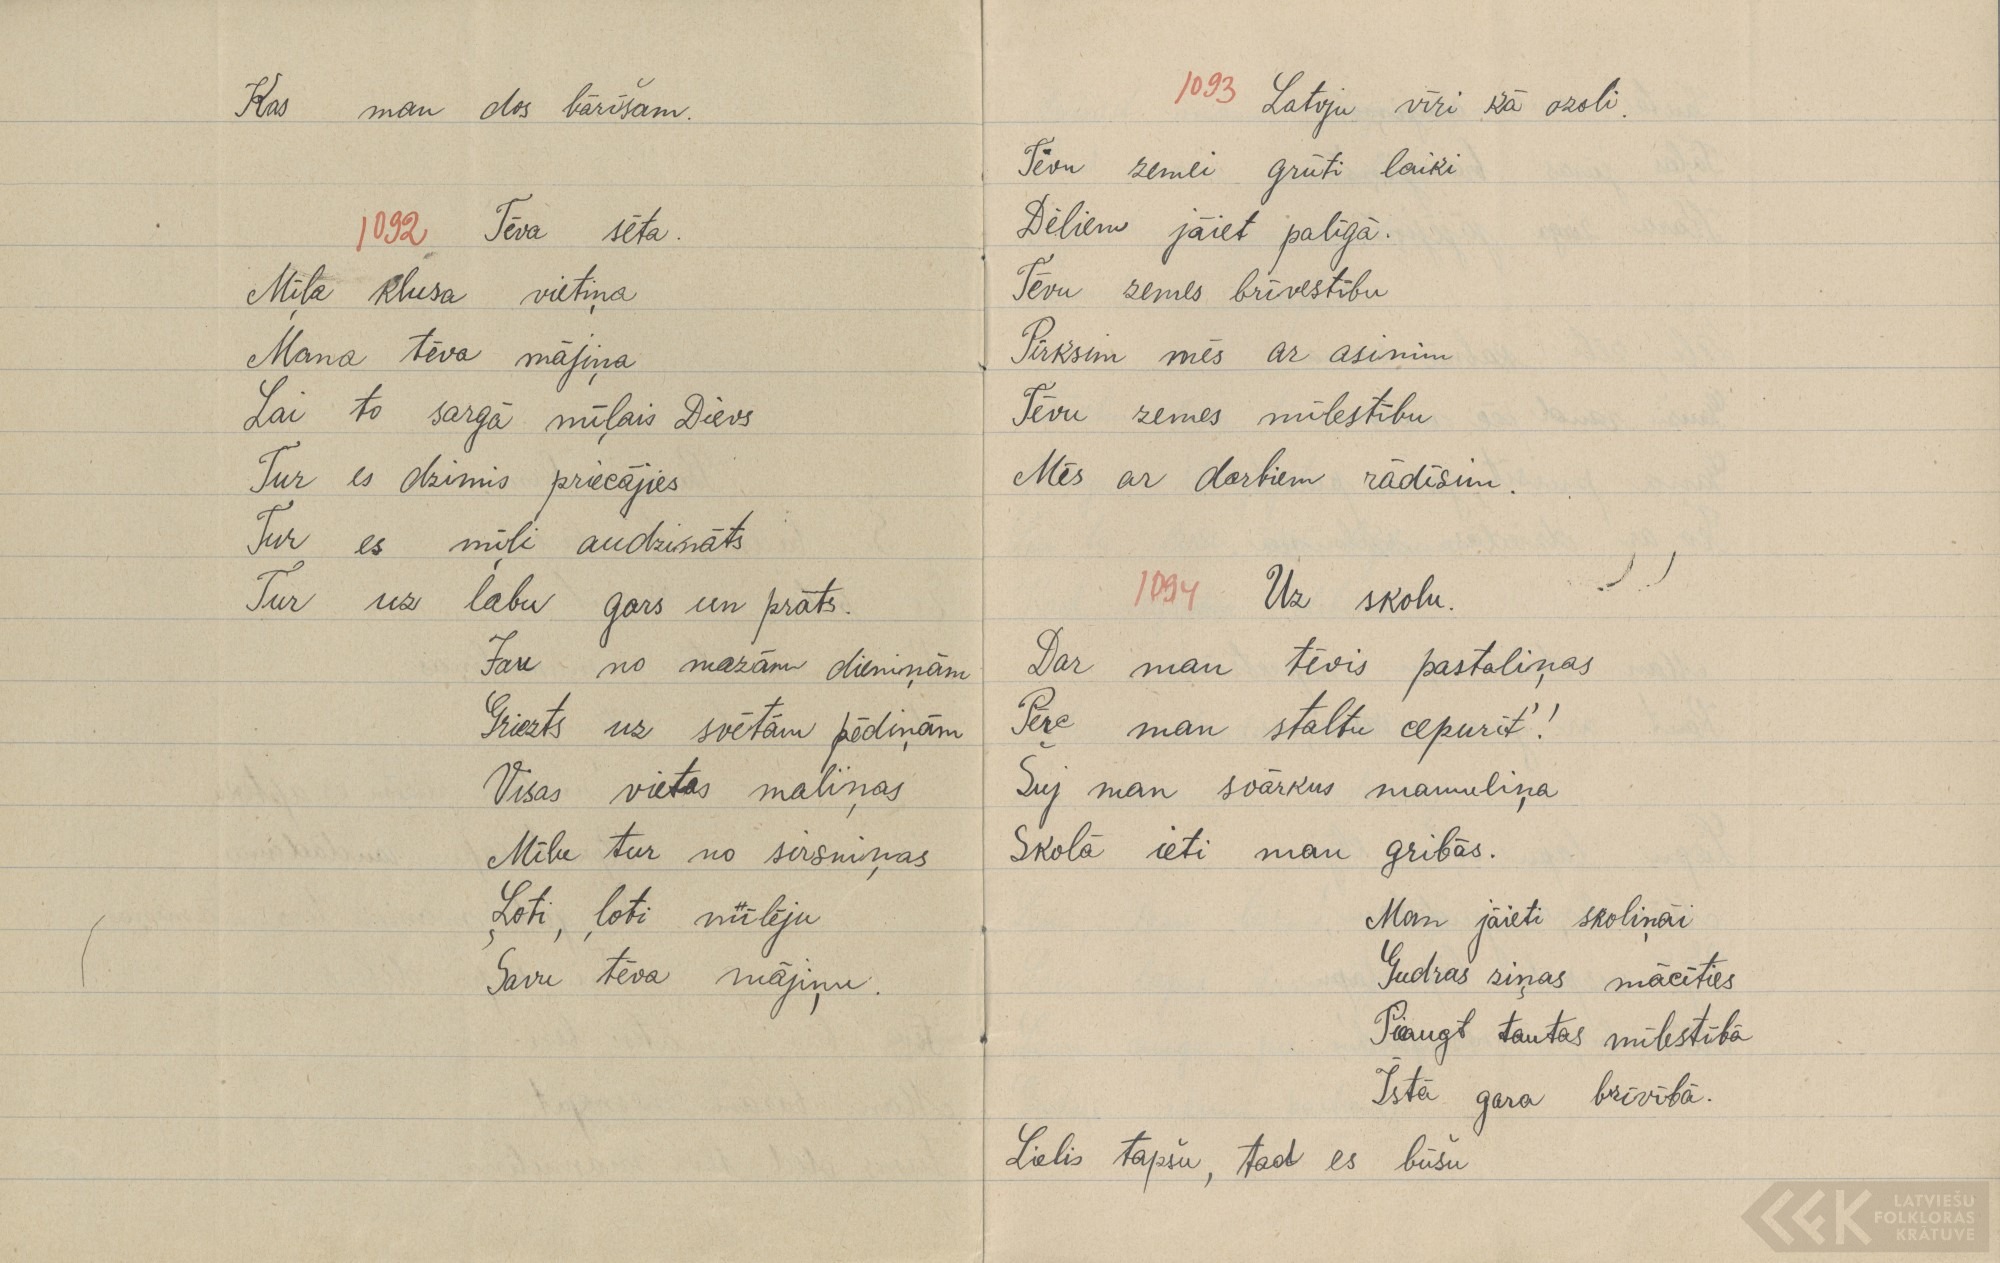 Kas man dos bāriņam.
1092 Tēva sēta.
Mīļa klusa vietiņa
Mana tēva mājiņa
Lai to sargā mīļais Dievs
Tur es dzimis priecājies
Tur es mīļi audzināts
Tur uz labu gars un prāts.
Jau no mazām dieniņām
Griezts uz svētām pēdiņām
Visas vietas maliņas
Mīlu tur no sirsniņas
Ļoti, ļoti mīlēju
Savu tēva mājiņu.
1093 Latvju vīri kā ozoli.
Tēvu zemei grūti laiki
Dēliem jāiet palīgā.
Tēvu zemes brīvestību
Pirksim mēs ar asinīm
Tēvu zemes mīlestību
Mēs ar darbiem rādīsim.
1094 Uz skolu.
Dar man tēvis pastaliņas
Pērc man staltu cepurīt'!
Šuj man svārkus mamuliņa
Skolā ieti man gribās.
Man jāieti skoliņāi
Gudras ziņas mācīties
Pieaugt tautas mīlestībā
Īstā gara brīvībā.
Lielis tapšu, tad es būšu
LATVIEŠU
FOLKLORAS
KRĀTUVE